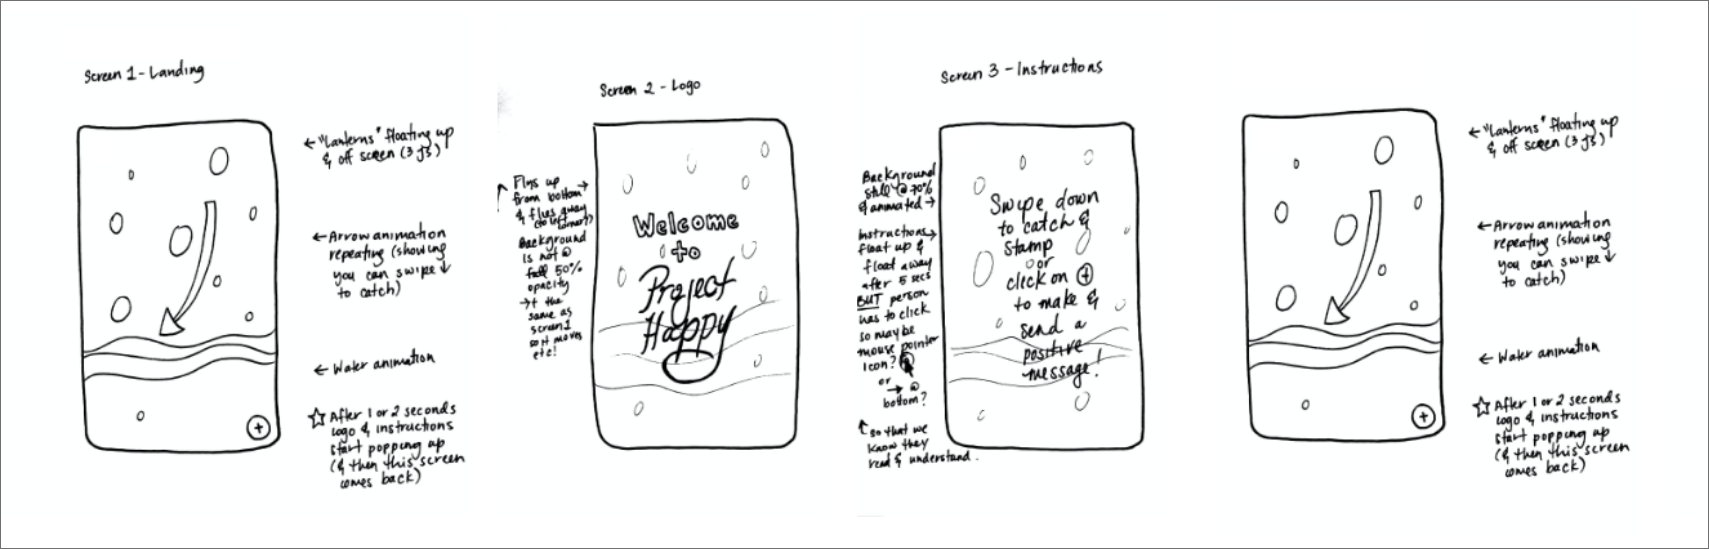 Screen 1 - Landing
← "Lanterns" floating up
& off screen (3 js)
← Arrow animation
repeating (showing
you can swipe ↓
to catch)
← Water animation
☆ After 1 or 2 seconds
logo & instructions
start popping up
(& then this screen
comes back)
+
Screen 2 - Logo
Flys up →
from bottom
& flies away
(to left corner??)
Background
is not @
full 50%
opacity
→ the
same as
screen 1
so it moves
etc!
Welcome
to
Project
Happy
Screen 3 - Instructions
Background
still @ 70%
& animated →
Instructions →
float up &
float away
after 5 secs
BUT person
has to click
so maybe
mouse pointer
icon?
or
→ @
bottom?
↑ so that we
know they
read & understand.
Swipe down
to catch &
stamp
or
click on ⊕
to make &
send a
positive
message!
← "Lanterns" floating up
& off screen (3 js)
← Arrow animation
repeating (showing
you can swipe ↓
to catch)
← Water animation
☆ After 1 or 2 seconds
logo & instructions
start popping up
(& then this screen
comes back)
+